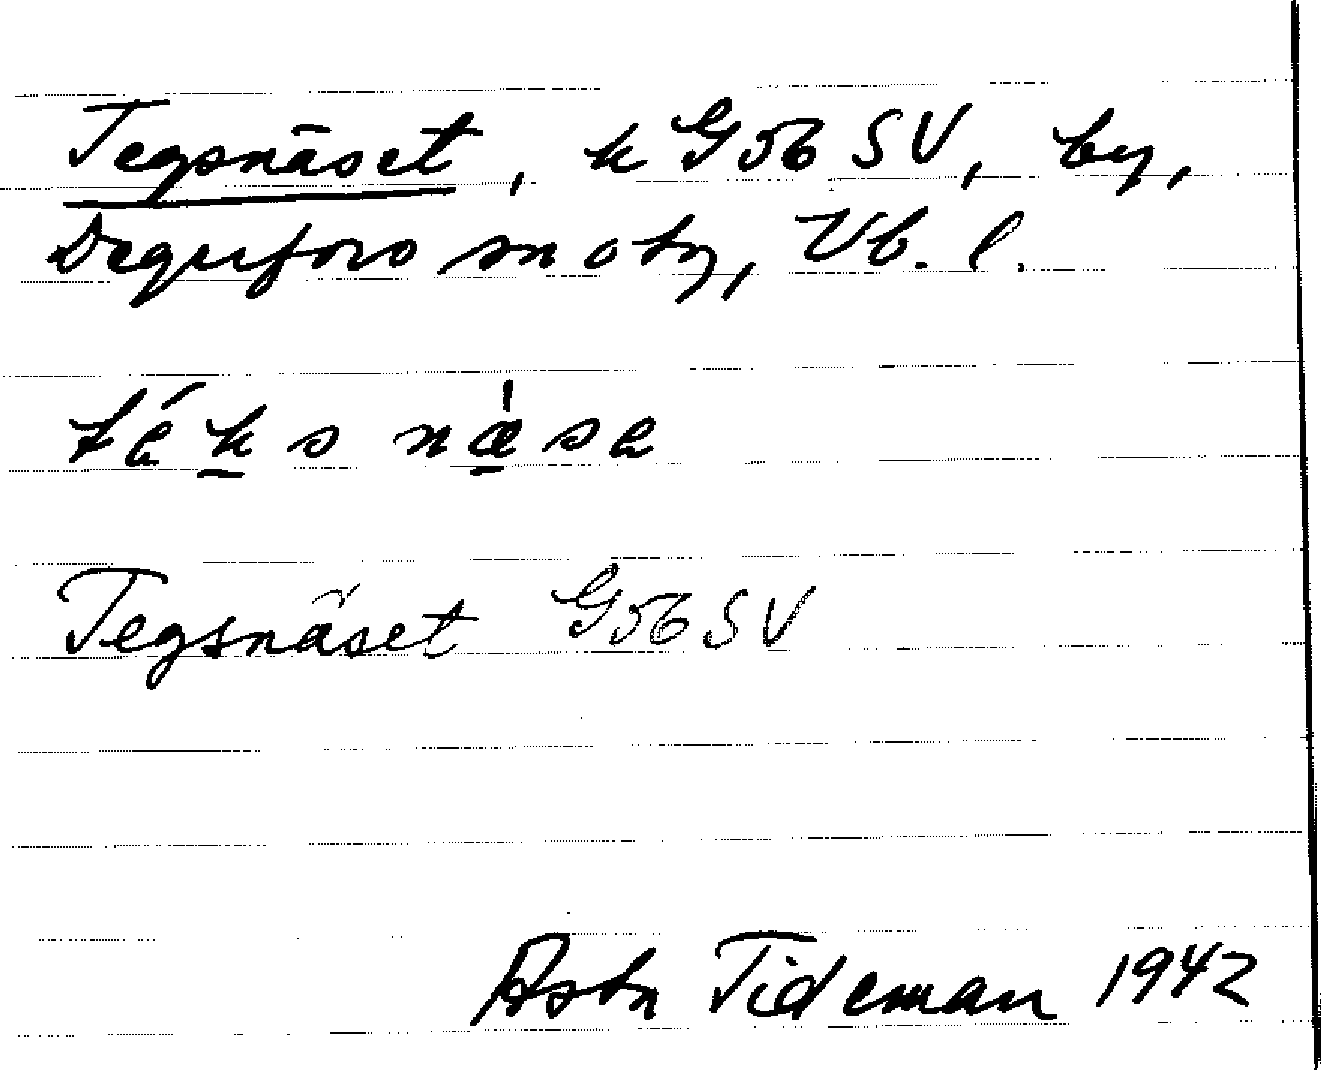 Tegsnäset, k G56 SV, by,
Degerfors sn o tg, Vb. l.
téksnæ̀se
Tegsnäset G56 SV
Asta Tideman 1942